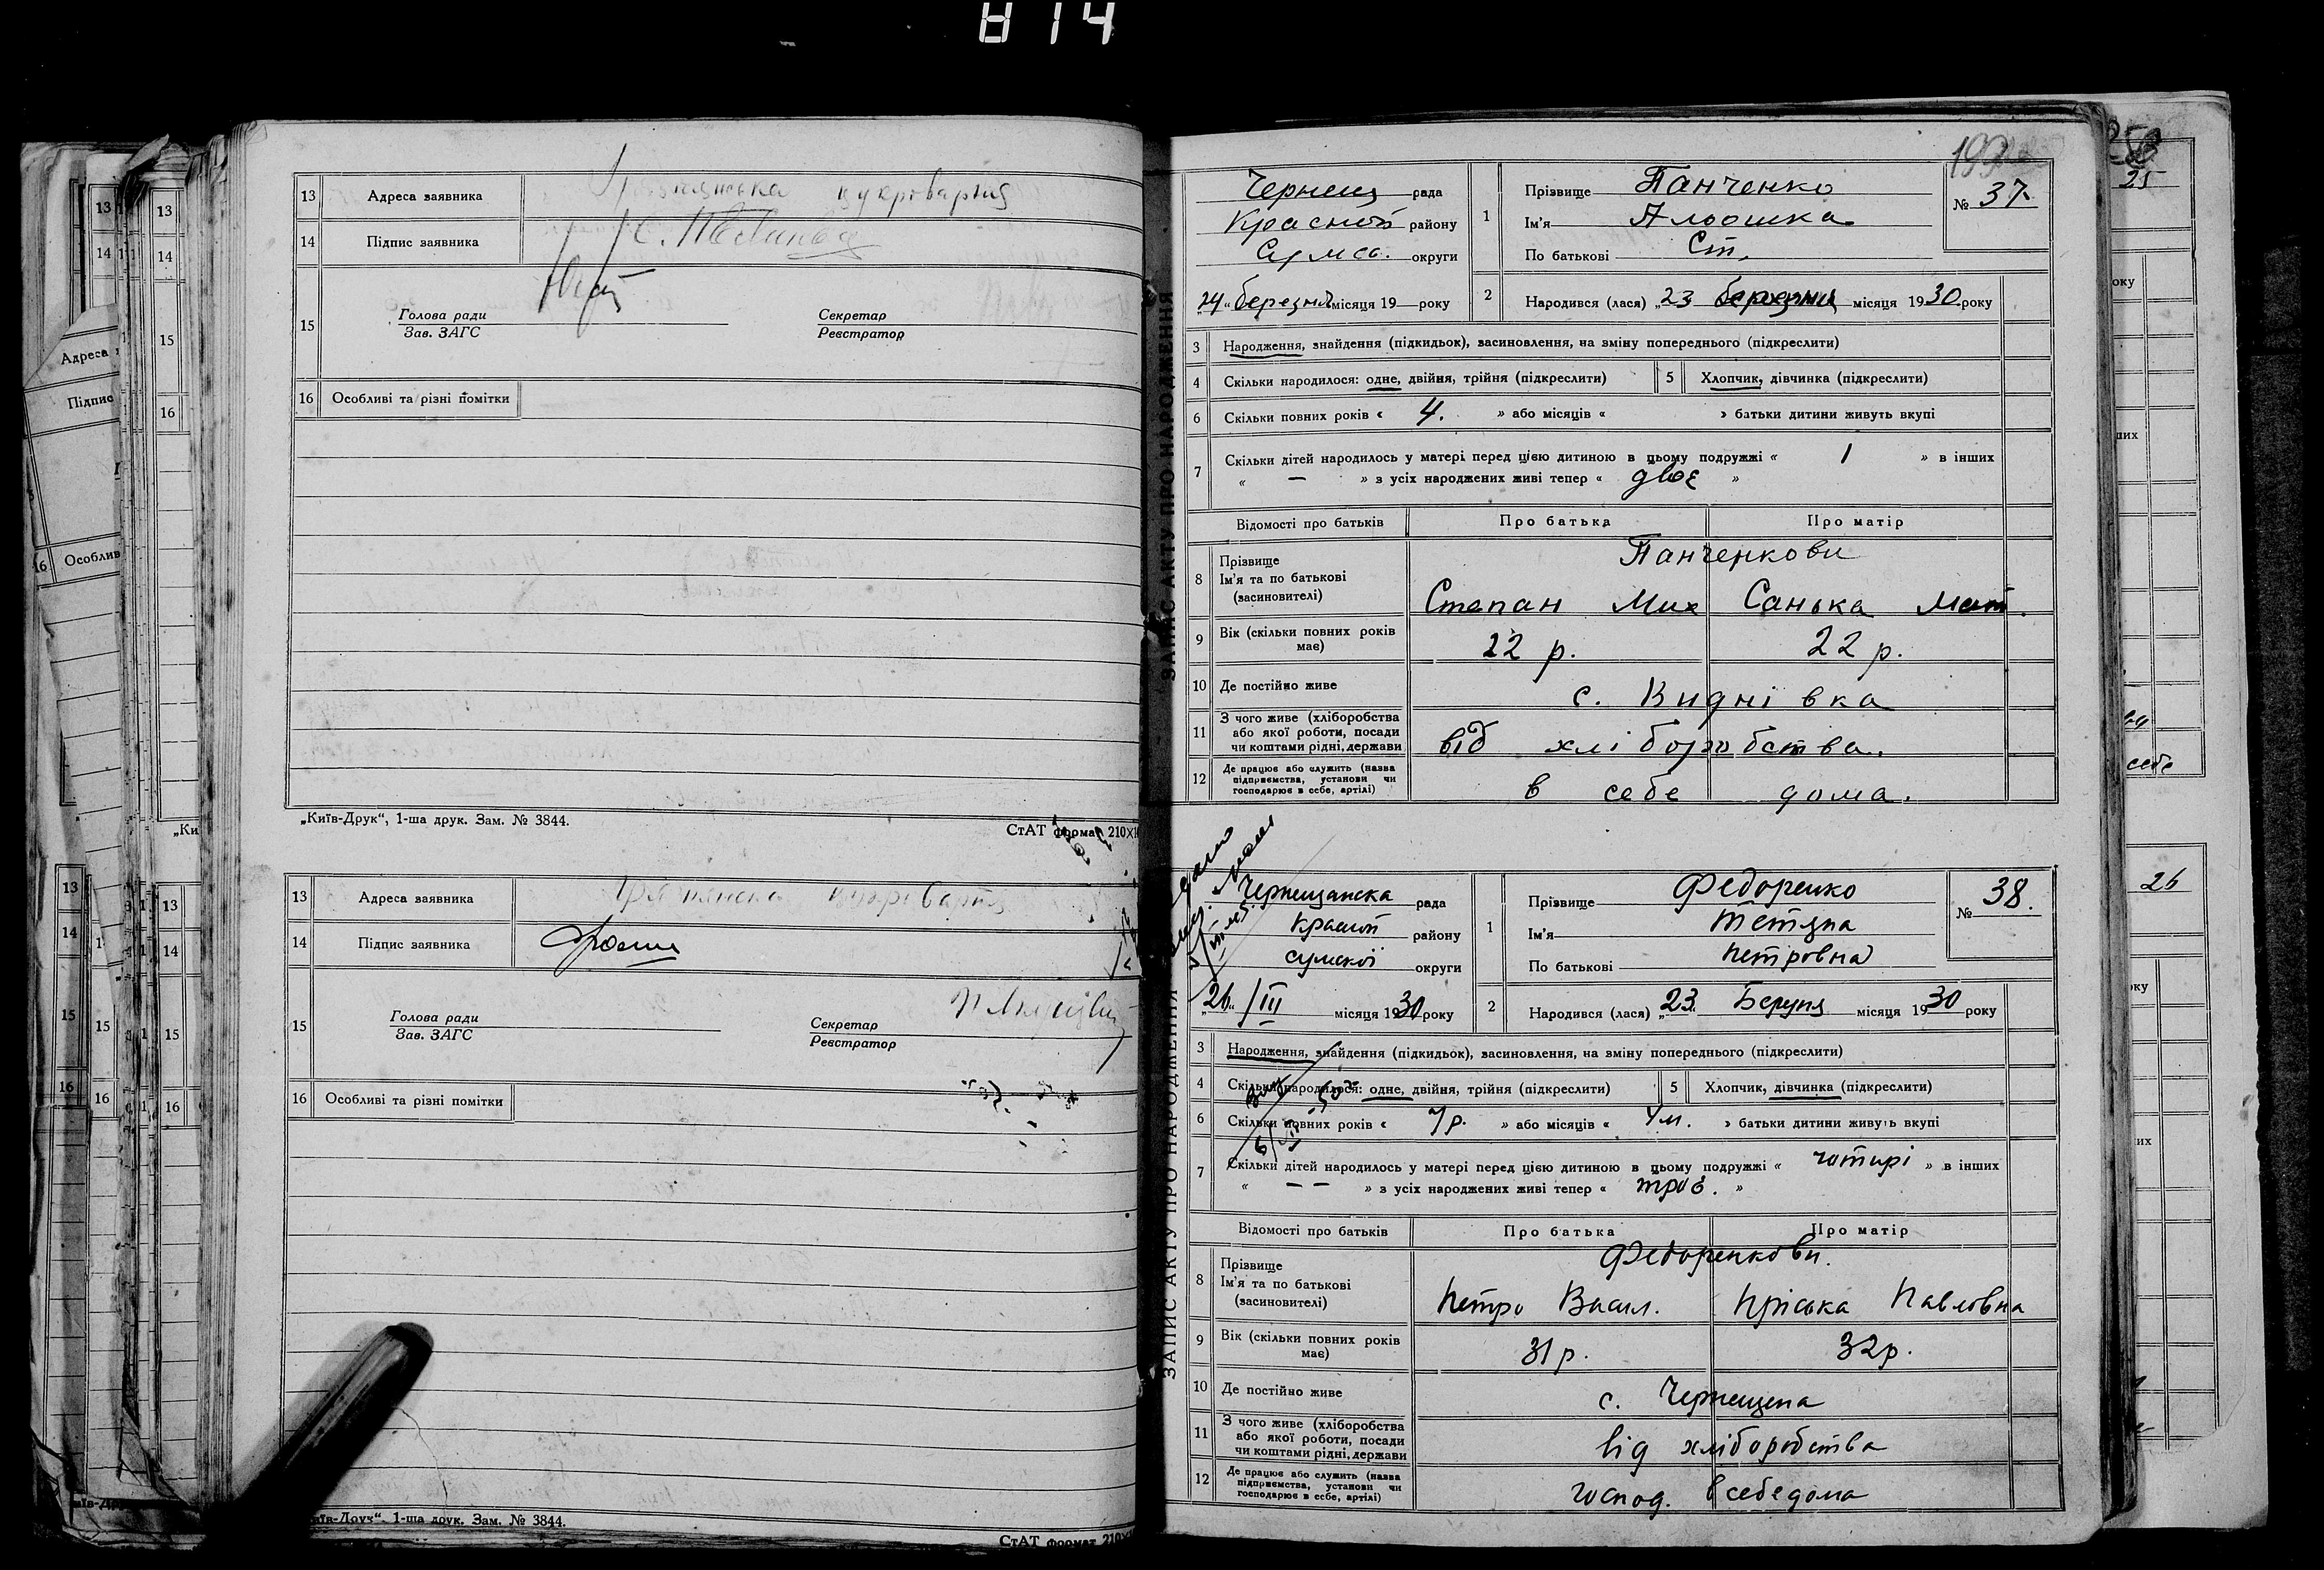 814
13 Адреса заявника цукроварня
14 Підпис заявника
15 Голова ради
Зав. ЗАГС
Секретар
Реєстратор
16 Особливі та різні помітки
„Київ-Друк“, 1-ша друк. Зам. № 3844.
СтАТ формат 210×1
13 Адреса заявника
14 Підпис заявника
15 Голова ради
Зав. ЗАГС
Секретар
Реєстратор
16 Особливі та різні помітки
1-ша друк. Зам. № 3844.
СтАТ формат 210×
ЗАПИС АКТУ ПРО НАРОДЖЕННЯ
Чернещ рада
Красноп району
Сумсь. округи
„24“ березня місяця 19 року
1 Прізвище Панченко
Ім'я Альошка
По батькові Ст.
№ 37
2 Народився (лася) „23 березня місяця 1930 року
3 Народження, знайдення (підкидьок), засиновлення, на зміну попереднього (підкреслити)
4 Скільки народилося: одне, двійня, трійня (підкреслити) 5 Хлопчик, дівчинка (підкреслити)
6 Скільки повних років « 4. » або місяців « » батьки дитини живуть вкупі
7 Скільки дітей народилось у матері перед цією дитиною в цьому подружжі « 1 » в інших
« — » з усіх народжених живі тепер « двоє »
Відомості про батьків Про батька Про матір
8 Прізвище
Ім'я та по батькові
(засиновителі)
Панченкови
Степан Мих Санька Мат.
9 Вік (скільки повних років має) 22 р. 22 р.
10 Де постійно живе с. Виднівка
11 З чого живе (хліборобства
або якої роботи, посади
чи коштами рідні, держави
від хліборобства.
12 Де працює або служить (назва
підприємства, установи чи
господарює в себе, артілі)
в себе дома.
ЗАПИС АКТУ ПРО НАРОДЖЕННЯ
Чернещанска рада
Красноп району
сумскої округи
„26“/III місяця 1930 року
1 Прізвище Федоренко
Ім'я Тетяна
По батькові Петровна
№ 38.
2 Народився (лася) „23“ Березня місяця 1930 року
3 Народження, знайдення (підкидьок), засиновлення, на зміну попереднього (підкреслити)
4 Скільки народилося: одне, двійня, трійня (підкреслити) 5 Хлопчик, дівчинка (підкреслити)
6 Скільки повних років « 7р. » або місяців « 4м. » батьки дитини живуть вкупі
7 Скільки дітей народилось у матері перед цією дитиною в цьому подружжі « чотирі » в інших
« — — » з усіх народжених живі тепер « троє. »
Відомості про батьків Про батька Про матір
8 Прізвище
Ім'я та по батькові
(засиновителі)
Федоренкови.
Петро Васил. Пріська Павловна
9 Вік (скільки повних років має) 31р. 32р.
10 Де постійно живе с. Чернещена
11 З чого живе (хліборобства
або якої роботи, посади
чи коштами рідні, держави
від хліборобства
12 Де працює або служить (назва
підприємства, установи чи
господарює в себе, артілі)
господ. в себе дома
25
26